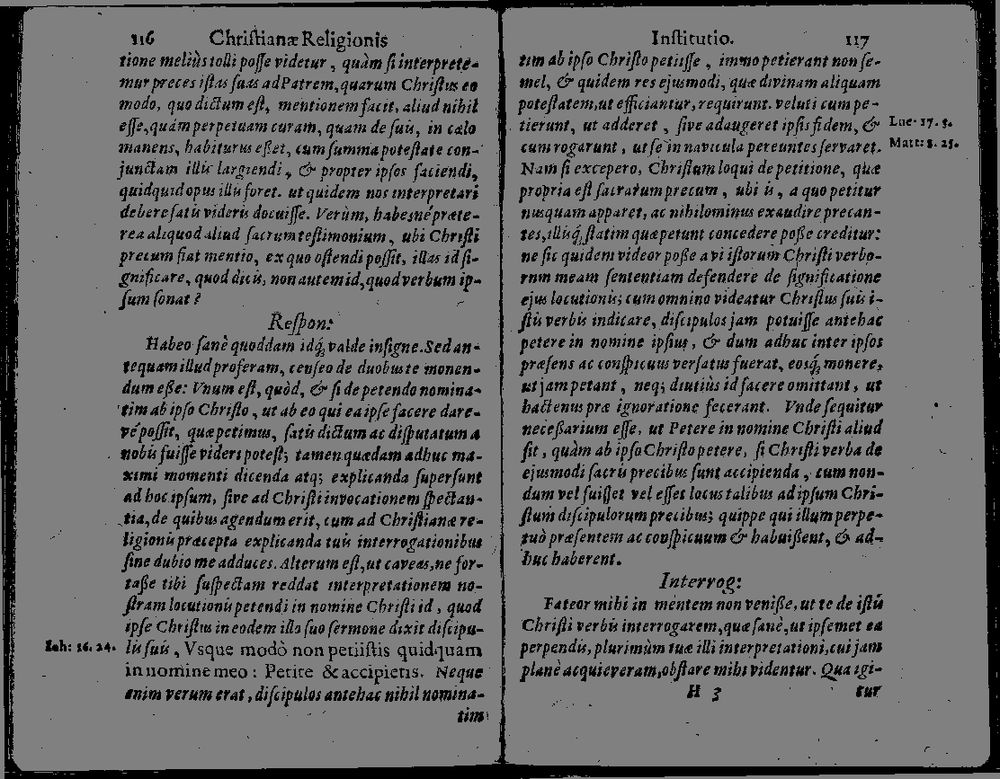 116 Christianæ Religionis
tione meliùs tolli posse videtur, quàm si interprete-
mur preces istas suas ad Patrem, quarum Christus eo
modo, quo dictum est, mentionem facit, aliud nihil
esse, quám perpetuam curam, quam de suis, in cælo
manens, habiturus eßet, cum summa potestate con-
junctam illis largiendi, & propter ipsos faciendi,
quidquid opus illis foret. ut quidem nos interpretari
debere satis videris docuisse. Verùm, habesné præte-
rea aliquod aliud sacrum testimonium, ubi Christi
precum fiat mentio, ex quo ostendi possit, illas id si-
gnificare, quod dicis, non autem id, quod verbum ip-
sum sonat?
Respon:
Habeo sanè quoddam idq́; valde insigne. Sed an-
tequam illud proferam, censeo de duobus te monen-
dum eße: Vnum est, quòd, & si de petendo nomina-
tim ab ipso Christo, ut ab eo qui ea ipse facere dare-
vé possit, quæ petimus, satis dictum ac disputatum a
nobis fuisse videri potest; tamen quædam adhuc ma-
ximi momenti dicenda atq; explicanda supersunt
ad hoc ipsum, sive ad Christi invocationem spectan-
tia, de quibus agendum erit, cum ad Christianæ re-
ligionis præcepta explicanda tuis interrogationibus
sine dubio me adduces. Alterum est, ut caveas, ne for-
taße tibi suspectam reddat interpretationem no-
stram locutionis petendi in nomine Christi id, quod
ipse Christus in eodem illo suo sermone dixit discipu-
Ioh: 16. 24. lis suis, Vsque modò non petiistis quidquam
in nomine meo: Petite & accipietis. Neque
enim verum erat, discipulos antehac nihil nomina-
tim
Institutio. 117
tim ab ipso Christo petiisse, immo petierant non se-
mel, & quidem res ejusmodi, quæ divinam aliquam
potestatem, ut efficiantur, requirunt. veluti cum pe-
tierunt, ut adderet, sive adaugeret ipsis fidem, & Luc. 17. 5.
cum rogarunt, ut se in navicula pereuntes servaret. Matt: 8. 25.
Nam si excepero, Christum loqui de petitione, quæ
propria est sacrarum precum, ubi is, a quo petitur
nusquam apparet, ac nihilominus exaudire precan-
tes, illisq́; statim quæ petunt concedere poße creditur:
ne sic quidem videor poße a vi istorum Christi verbo-
rum meam sententiam defendere de significatione
ejus locutionis; cum omnino videatur Christus suis i-
stis verbis indicare, discipulos jam potuisse antehac
petere in nomine ipsius, & dum adhuc inter ipsos
præsens ac conspicuus versatus fuerat, eosq́; monere,
ut jam petant, neq; diutiùs id facere omittant, ut
hactenus præ ignoratione fecerant. Vnde sequitur
neceßarium esse, ut Petere in nomine Christi aliud
sit, quàm ab ipso Christo petere, si Christi verba de
ejusmodi sacris precibus sunt accipienda, cum non-
dum vel fuisset vel esset locus talibus ad ipsum Chri-
stum discipulorum precibus; quippe qui illum perpe-
tuò præsentem ac conspicuum & habuißent, & ad-
huc haberent.
Interrog:
Fateor mihi in mentem non veniße, ut te de istis
Christi verbis interrogarem, quæ sanè, ut ipsemet ea
perpendis, plurimùm tuæ illi interpretationi, cui jam
planè acquieveram, obstare mihi videntur. Qua igi-
H 3 tur